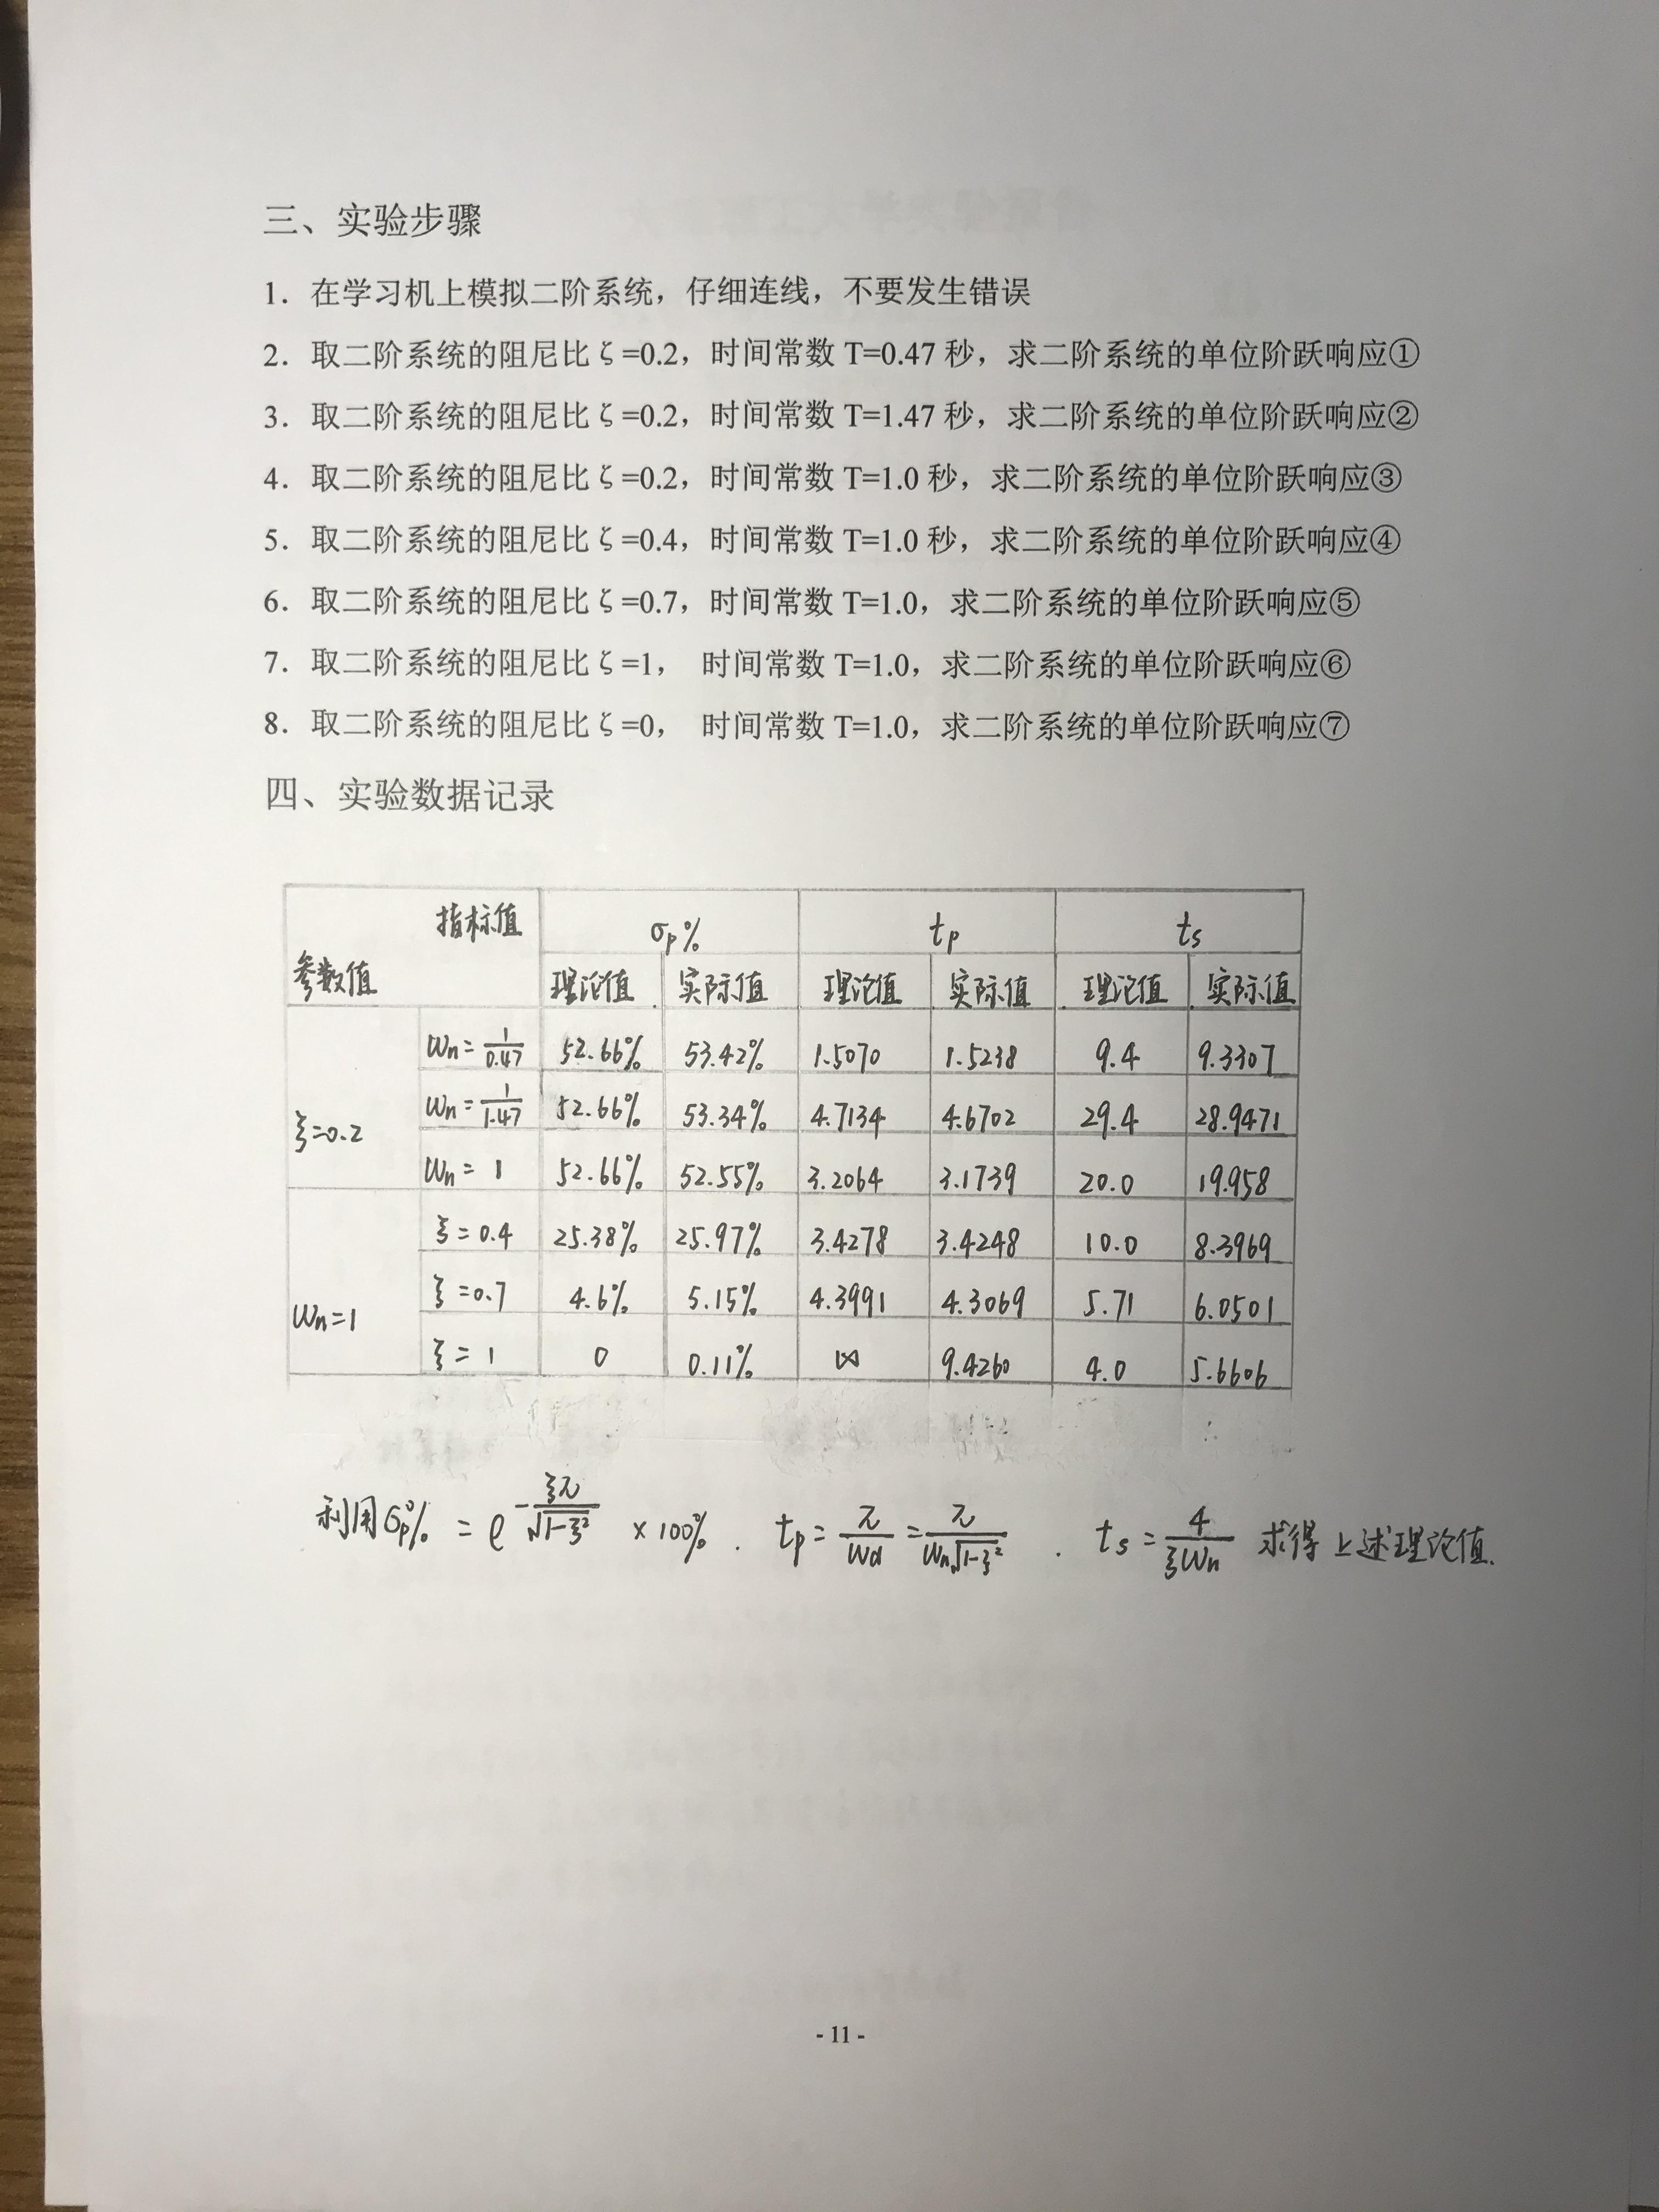 三、实验步骤
1. 在学习机上模拟二阶系统，仔细连线，不要发生错误
2. 取二阶系统的阻尼比ζ=0.2，时间常数 T=0.47 秒，求二阶系统的单位阶跃响应①
3. 取二阶系统的阻尼比ζ=0.2，时间常数 T=1.47 秒，求二阶系统的单位阶跃响应②
4. 取二阶系统的阻尼比ζ=0.2，时间常数 T=1.0 秒，求二阶系统的单位阶跃响应③
5. 取二阶系统的阻尼比ζ=0.4，时间常数 T=1.0 秒，求二阶系统的单位阶跃响应④
6. 取二阶系统的阻尼比ζ=0.7，时间常数 T=1.0，求二阶系统的单位阶跃响应⑤
7. 取二阶系统的阻尼比ζ=1， 时间常数 T=1.0，求二阶系统的单位阶跃响应⑥
8. 取二阶系统的阻尼比ζ=0， 时间常数 T=1.0，求二阶系统的单位阶跃响应⑦
四、实验数据记录
指标值 σp% tp ts
参数值 理论值 实际值 理论值 实际值 理论值 实际值
ωn=1/0.47 52.66% 53.42% 1.5070 1.5238 9.4 9.3307
ξ=0.2 ωn=1/1.47 52.66% 53.34% 4.7134 4.6702 29.4 28.9471
ωn=1 52.66% 52.55% 3.2064 3.1739 20.0 19.958
ξ=0.4 25.38% 25.97% 3.4278 3.4248 10.0 8.3969
ωn=1 ξ=0.7 4.6% 5.15% 4.3991 4.3069 5.71 6.0501
ξ=1 0 0.11% ∞ 9.4260 4.0 5.6606
利用σp% = e^(-ξπ/√(1-ξ²)) ×100%. tp=π/ωd=π/(ωn√(1-ξ²)). ts=4/(ξωn) 求得上述理论值.
- 11 -